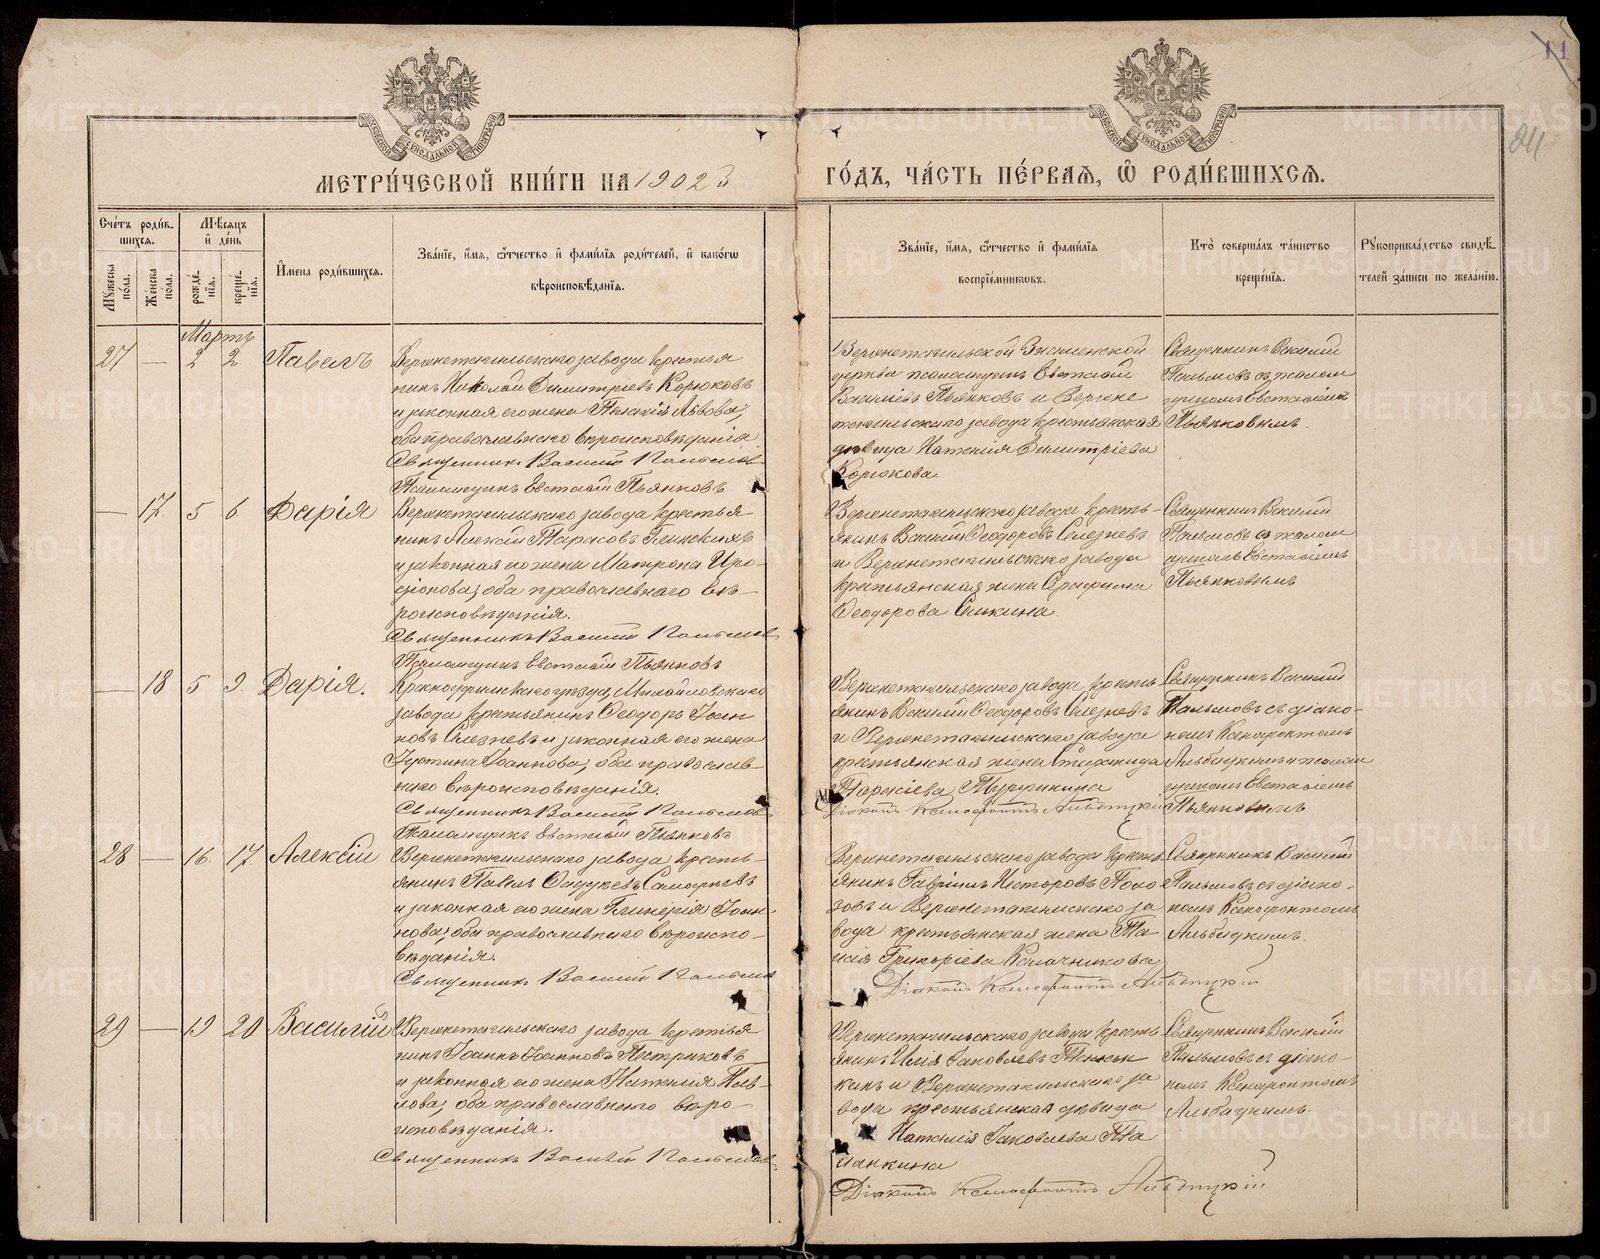 МЕТРИ́ЧЕСКОЙ КНИ́ГИ НА 1902й
ГО́ДЪ, ЧА́СТЬ ПЕ́РВАЯ, Ѽ РОДИ́ВШИХСЯ.
11
24
Сче́тъ роди́в-
шихся.
Мѣсяцъ
и де́нь
Му́жеска по́ла.
Же́нска по́ла.
рожде́-
нїя.
креще́-
нїя.
И҆мена роди́вшихся.
Зва́нїе, и҆́мя, ѻ҆́тчество и҆ фами́лїя роди́телей, и҆ како́гѡ
вѣроисповѣ́данїя.
Зва́нїе, и҆́мя, ѻ҆́тчество и҆ фами́лїя
воспрїе́мникѡвъ.
Кто̀ соверша́лъ та́инство
креще́нїя.
Рꙋкоприкла́дство свидѣ́-
телей за́писи по жела́нїю.
Мартъ
27 — 2 2 Павелъ
Верхнетагильскаго завода крестья
нинъ Николай Димитріевъ Корюковъ
и законная его жена Пелагія Львова,
оба православнаго вѣроисповѣданія
Священникъ Василій Пальмовъ
Псаломщикъ Евстафій Пьянковъ
Верхнетагильской Знаменской
церкви псаломщикъ Евстафій
Василіевъ Пьянковъ и Верхне
тагильскаго завода крестьянская
дѣвица Наталія Димитріева
Корюкова
Священникъ Василій
Пальмовъ съ псалом
щикомъ Евстафіемъ
Пьянковымъ
— 17. 5 6 Дарія
Верхнетагильскаго завода крестья
нинъ Алексій Тарасовъ
и законная его жена Матрона Иро-
діонова, оба православнаго вѣ-
роисповѣданія.
Священникъ Василій Пальмовъ
Псаломщикъ Евстафій Пьянковъ
Верхнетагильскаго завода кресть-
янинъ Василій Ѳеодоровъ Селезневъ
и Верхнетагильскаго завода
крестьянская жена Серафима
Ѳеодорова
Священникъ Василій
Пальмовъ съ псалом
щикомъ Евстафіемъ
Пьянковымъ
— 18 5 9. Дарія.
Красноуфимскаго уѣзда, Михайловскаго
завода крестьянинъ Ѳеодоръ Іоан
новъ Селезневъ и законная его жена
Іустина Іоаннова, оба православ
наго вѣроисповѣданія.
Священникъ Василій Пальмовъ
Псаломщикъ Евстафій Пьянковъ
Верхнетагильскаго завода кресть
янинъ Василій Ѳеодоровъ Селезневъ
и Верхнетагильскаго завода
крестьянская жена Стефанида
Тарасіева
Діаконъ Ксенофонтъ Альбицкій
Священникъ Василій
Пальмовъ съ діако-
номъ Ксенофонтомъ
Альбицкимъ и псалом
щикомъ Евстафіемъ
Пьянковымъ
28 — 16. 17 Алексій
Верхнетагильскаго завода кресть-
янинъ Павелъ
и законная его жена Гликерія Іоан
нова, оба православнаго вѣроиспо-
вѣданія.
Священникъ Василій Пальмовъ
Верхнетагильскаго завода кресть
янинъ Гавріилъ Несторовъ
и Верхнетагильскаго за
вода крестьянская жена Та
исія Григоріева Калачникова
Діаконъ Ксенофонтъ Альбицкій
Священникъ Василій
Пальмовъ съ діако-
номъ Ксенофонтомъ
Альбицкимъ.
29 — 19 20 Василій
Верхнетагильскаго завода крестья
нинъ Іоаннъ Іоанновъ Пестриковъ
и законная его жена Наталія Пав-
лова, оба православнаго вѣро-
исповѣданія.
Священникъ Василій Пальмовъ
Верхнетагильскаго завода кресть
янинъ Илія Іаковлевъ
и Верхнетагильскаго за
вода крестьянская дѣвица
Наталія Іаковлева Та
ланкина
Діаконъ Ксенофонтъ Альбицкій
Священникъ Василій
Пальмовъ съ діако-
номъ Ксенофонтомъ
Альбицкимъ
METRIKI.GASO-URAL.RU